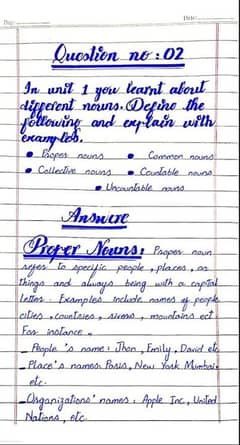 Date:
Question no : 02
In unit 1 you learnt about
different nouns. Define the
following and explain with
examples.
• Proper nouns • Common nouns
• Collective nouns • Countable nouns
• Uncountable nouns
Answre
Proper Nouns: Proper noun
refer to specific people, places, or
things and always being with a capital
letter. Examples include names of people
cities, countries, rivers, mountains ect
For instance.
_ People's name: Jhon, Emily, David etc
_ Place's names: Paris, New York Mumbai
etc.
_ Organizations' names: Apple Inc, United
Nations, etc.